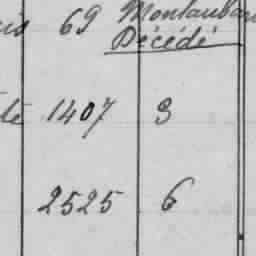 69 Montauban
Décédé
1407 3
2525 6